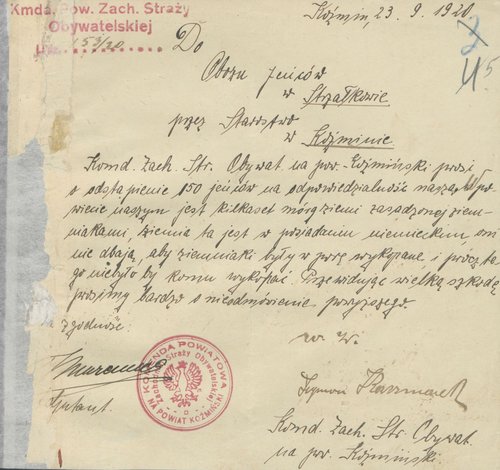 Kmda. Pow. Zach. Straży
Obywatelskiej
Nr. 153/20.
Koźmin, 23. 9. 1920
Do
Obozu Jeńców
w Strzałkowie
przez Starostwo
w Koźminie
Komd. Zach. Str. Obywat. na pow. Koźmiński prosi
o odstąpienie 150 jeńców na odpowiedzialność naszą. W po-
wiecie naszym jest kilkaset mórg ziemi zasadzonej ziem-
niakami, ziemia ta jest w posiadaniu niemieckim oni
nie dbają, aby ziemniaki były w porę wykopane i prócz te-
go niebyło by komu wykopać. Przewidując wielką szkodę
prosimy bardzo o nieodmówienie
zgodność:
Adjutant.
KOMENDA POWIATOWA
Zachodniej Straży Obywatelskiej
NA POWIAT KOŹMIŃSKI
Szymon Kaczmarek
Komd. Zach. Str. Obywat.
na pow. Koźmiński.